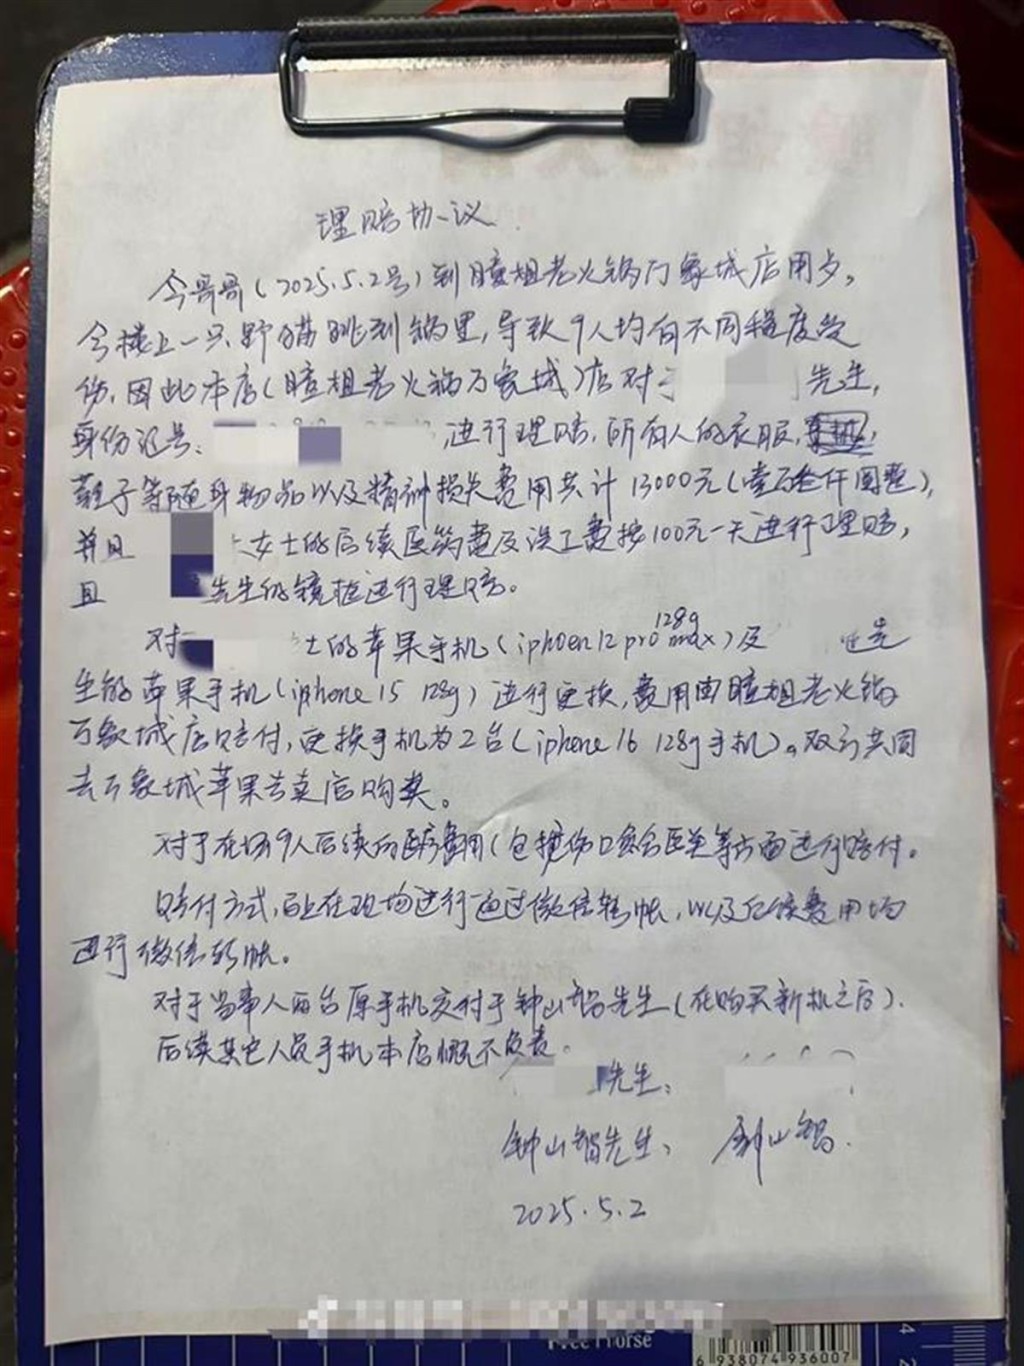 理赔协议.
今哥哥(2025.5.2号)到瞳姐老火锅万象城店用歺,
今楼上一只野猫跳到锅里,导致9人均有不同程度受
伤,因此本店(瞳姐老火锅万象城)店对 先生,
身份证号: 进行理赔,所有人的衣服,
鞋子等随身物品以及精神损失费用共计13000元(壹万叁仟圆整),
并且 女士的后续医药费及误工费按100元一天进行理赔,
且 先生的镜框进行理赔。
对 士的苹果手机(iphoen12 pro max 128g)及 先
生的苹果手机(iphone 15 128g)进行更换,费用由瞳姐老火锅
万象城店赔付,更换手机为2台(iphone 16 128g手机)。双方共同
去万象城苹果专卖店购买。
对于在场9人后续的医疗费用(包括伤口愈合医美等方面进行赔付。
赔付方式,马上在现场进行通过微信转帐,以及后续费用均
进行微信转帐。
对于当事人两台原手机交付于钟山智先生(在购买新机之后).
后续其它人员手机本店概不负责。
先生:
钟山智先生: 钟山智.
2025.5.2
Horse
6 938074 936007